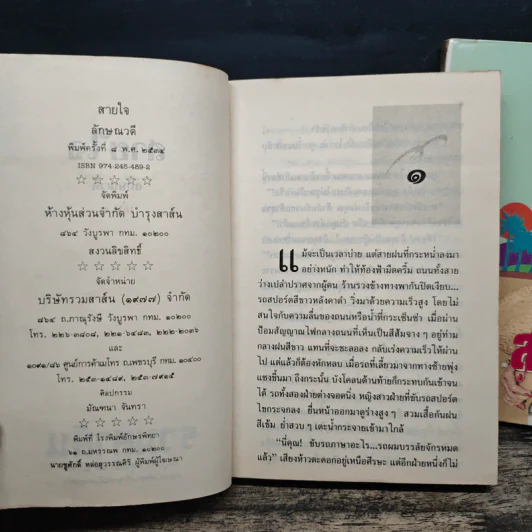 สายใจ
ลักษณวดี
พิมพ์ครั้งที่ ๘ พ.ศ. ๒๕๓๔
ISBN 974-246-489-2
☆ ☆ ☆ ☆ ☆
จัดพิมพ์
ห้างหุ้นส่วนจำกัด บำรุงสาส์น
๘๖๔ วังบูรพา กทม. ๑๐๒๐๐
สงวนลิขสิทธิ์
☆ ☆ ☆ ☆ ☆
จัดจำหน่าย
บริษัทรวมสาส์น (๑๙๗๗) จำกัด
๘๖๔ ถ.ภาณุรังษี วังบูรพา กทม. ๑๐๒๐๐
โทร. ๒๒๖-๓๘๐๘, ๒๒๑-๖๔๘๓, ๒๒๒-๒๐๓๖
และ
๑๐๙๑/๘๖ ศูนย์การค้าเมโทร ถ.เพชรบุรี กทม. ๑๐๔๐๐
โทร. ๒๕๓-๑๔๘๙, ๒๕๓-๗๙๑๕
ศิลปกรรม
มัณฑนา จันทรา
☆ ☆ ☆ ☆ ☆
พิมพ์ที่ โรงพิมพ์อักษรพิทยา
๖๑ ถ.มหรรณพ กทม. ๑๐๒๐๐
นายชูศักดิ์ หล่อสุวรรณศิริ ผู้พิมพ์ผู้โฆษณา
แม้จะเป็นเวลาบ่าย แต่สายฝนที่กระหน่ำลงมา
อย่างหนัก ทำให้ท้องฟ้ามืดครึ้ม ถนนทั้งสาย
ว่างเปล่าปราศจากผู้คน ร้านรวงข้างทางพากันปิดเงียบ...
รถสปอร์ตสีขาวหลังคาดำ วิ่งมาด้วยความเร็วสูง โดยไม่
สนใจกับความลื่นของถนนหรือน้ำที่กระเซ็นซ่า เมื่อผ่าน
ป้อมสัญญาณไฟกลางถนนที่เห็นเป็นสีส้มจาง ๆ อยู่ท่าม
กลางฝนสีขาว แทนที่จะชะลอลง กลับเร่งความเร็วให้ผ่าน
ไป แต่แล้วก็ต้องหักหลบ เมื่อรถที่เลี้ยวมาจากทางซ้ายพุ่ง
แซงขึ้นมา ถึงกระนั้น บังโคลนด้านท้ายก็กระทบกันเข้าจน
ได้ รถทั้งสองฝ่ายต่างจอดนิ่ง หญิงสาวฝ่ายที่ขับรถสปอร์ต
ไขกระจกลง ยื่นหน้าออกมาดูร่างสูง ๆ สวมเสื้อกันฝน
สีเข้ม ย่ำสวบ ๆ เตะน้ำกระจายเข้ามาใกล้
"นี่คุณ! ขับรถภาษาอะไร...รถผมบรรลัยจักรหมด
แล้ว" เสียงห้าวตะคอกอยู่เหนือศีรษะ แต่อีกฝ่ายหนึ่งก็ไม่